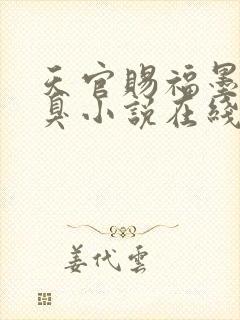 天官賜福墨
臭小說在綫
姜代雲